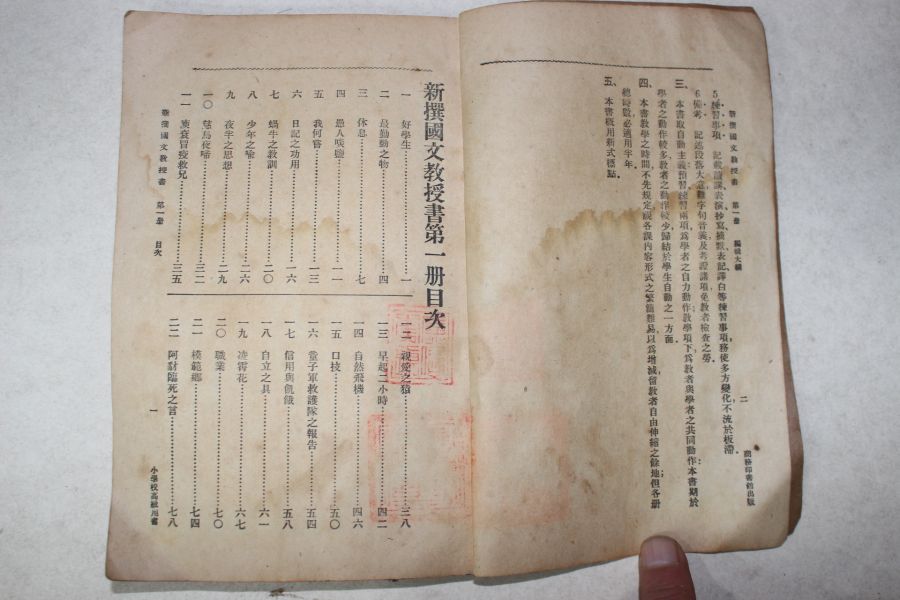 新撰國文教授書　第一册　編輯大綱
二
5 練習事項　記載讀講表演抄寫摘默表記譯白等練習事項務使多方變化不流於板滯
6 備考　記述段落大意難字句音義及考證諸項免教者檢查之勞
三、本書取自動主義預習練習兩項爲學者之自力動作教學項下爲教者與學者之共同動作本書期於
學者之動作較多教者之動作較少歸結於學生自動之一方面
四、本書教學之時間不先規定視各課內容形式之繁簡難易以爲增減留教者自由伸縮之餘地但各册
總時數必適用半年
五、本書概用新式標點
商務印書館出版
新撰國文教授書第一册目次
一　好學生……一
二　最勤動之物……四
三　休息……七
四　愚人唊鹽……一一
五　我何嘗……一三
六　日記之功用……一六
七　蝸牛之教訓……二〇
八　少年之喻……二六
九　夜半之思想……二九
一〇　慈烏夜啼……三二
一一　庾袞冒疫救兄……三五
一二　親愛之猿……三八
一三　早起二小時……四二
一四　自然飛機……四六
一五　口技……五〇
一六　童子軍救護隊之報告……五四
一七　信用與飢餓……五八
一八　自立之具……六一
一九　凌霄花……六七
二〇　職業……七〇
二一　模範鄉……七四
二二　阿財臨死之言……七八
新撰國文教授書　第一册　目次
一
小學校高級用書